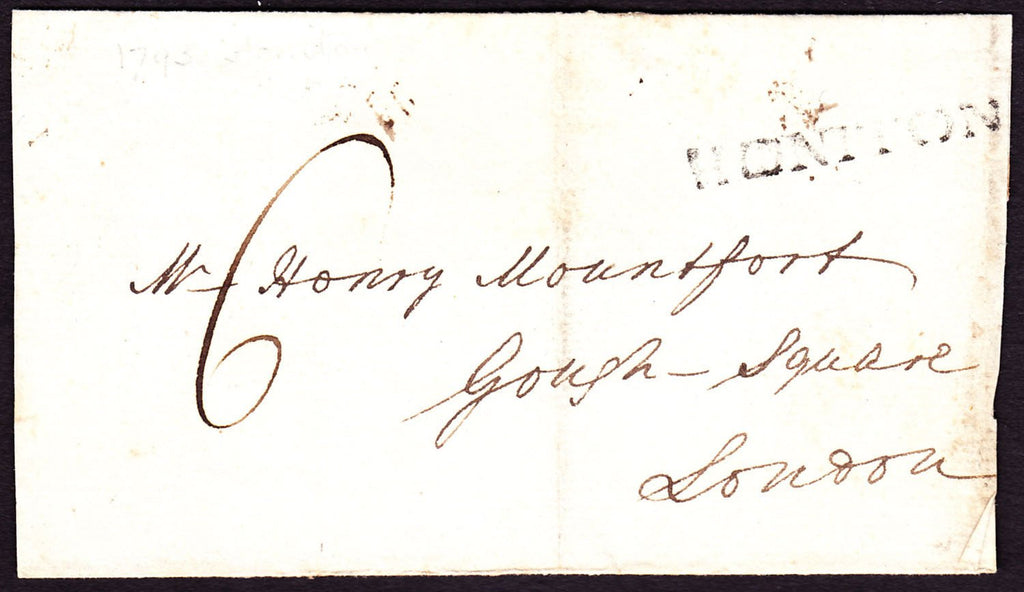 HONITON
6
Mr Henry Mountfort
Gough - Square
London